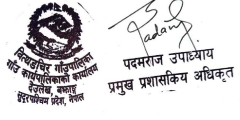 गाउँ कार्यपालिकाको कार्यालय
देउलेख, बझाङ्ग
सुदूरपश्चिम प्रदेश, नेपाल
पदमराज उपाध्याय
प्रमुख प्रशासकिय अधिकृत